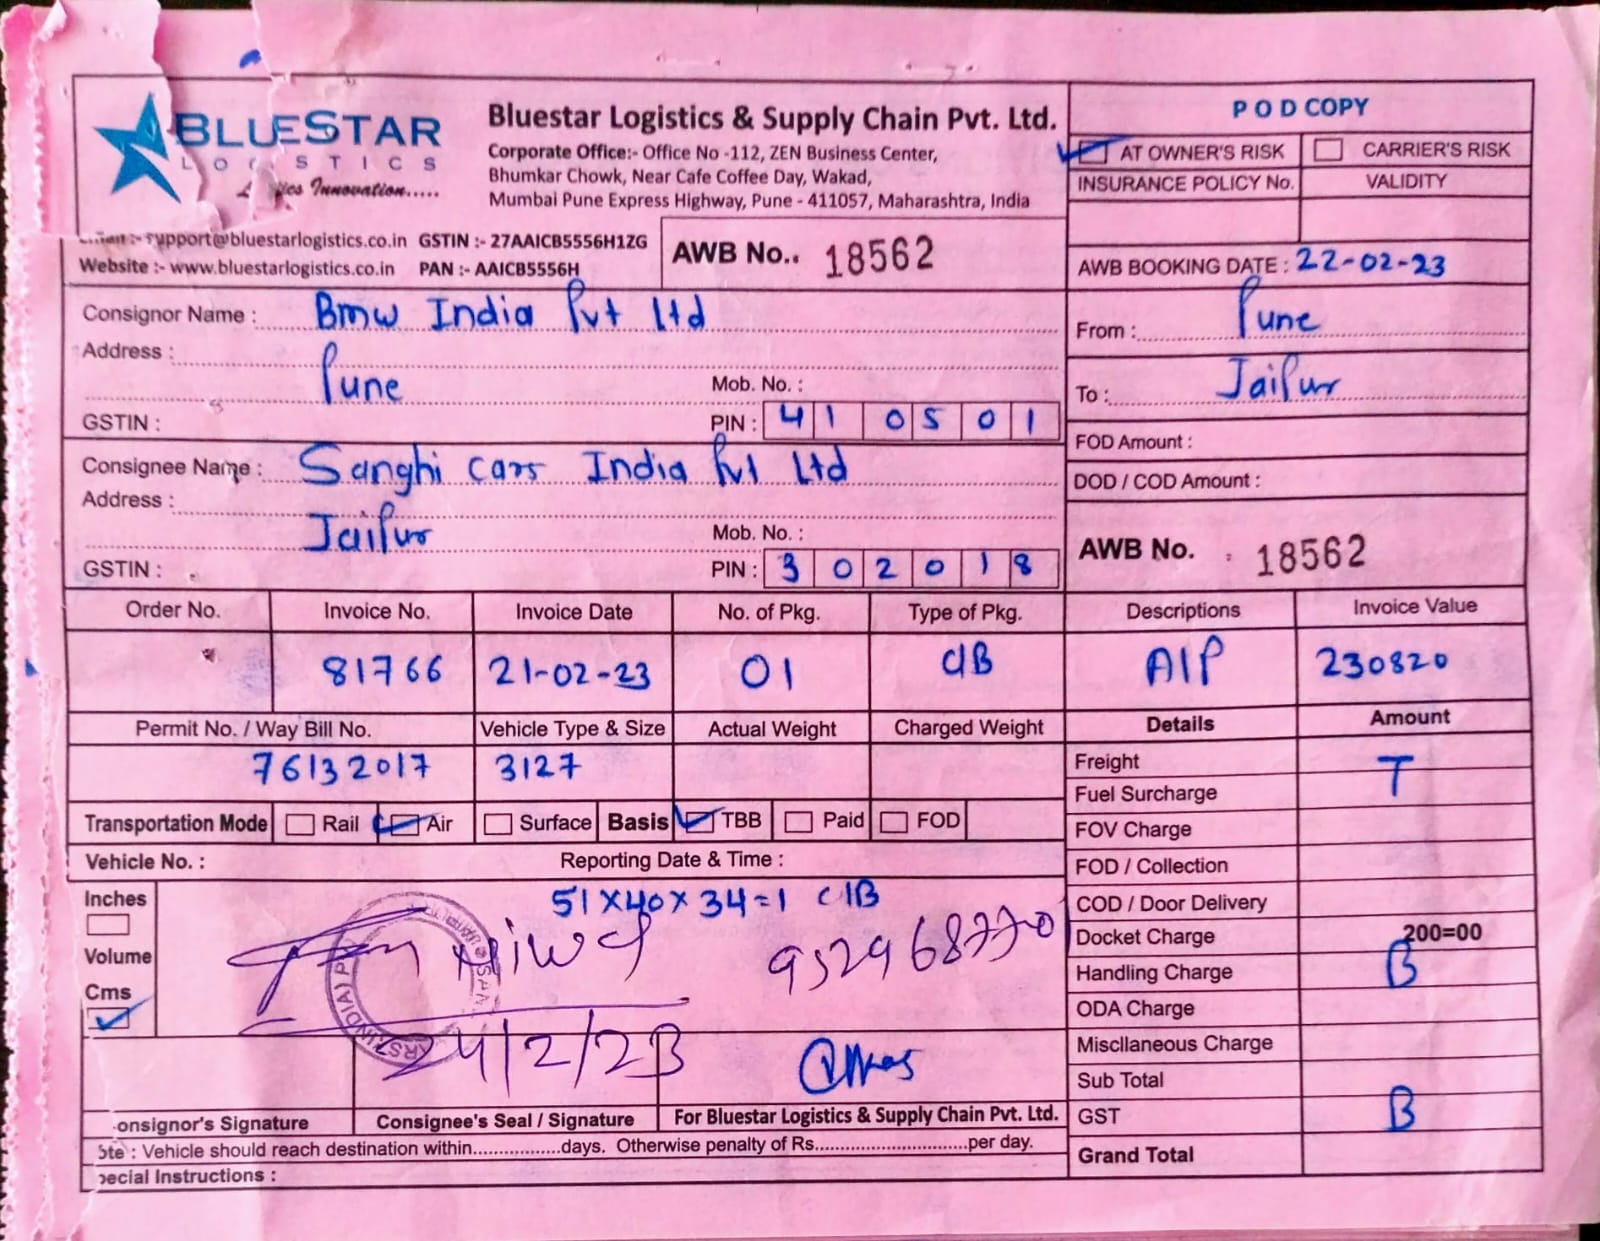 BLUESTAR
L O G I S T I C S
Innovation.....
Bluestar Logistics & Supply Chain Pvt. Ltd.
Corporate Office:- Office No -112, ZEN Business Center,
Bhumkar Chowk, Near Cafe Coffee Day, Wakad,
Mumbai Pune Express Highway, Pune - 411057, Maharashtra, India
support@bluestarlogistics.co.in GSTIN :- 27AAICB5556H1ZG
Website :- www.bluestarlogistics.co.in PAN :- AAICB5556H
AWB No.. 18562
P O D COPY
AT OWNER'S RISK CARRIER'S RISK
INSURANCE POLICY No. VALIDITY
AWB BOOKING DATE : 22-02-23
Consignor Name : Bmw India Pvt Ltd
Address :
Pune Mob. No. :
GSTIN : PIN : 410501
From : Pune
To : Jaipur
Consignee Name : Sanghi cars India Pvt Ltd
Address :
Jaipur Mob. No. :
GSTIN : PIN : 302018
FOD Amount :
DOD / COD Amount :
AWB No. : 18562
Order No. Invoice No. Invoice Date No. of Pkg. Type of Pkg. Descriptions Invoice Value
81766 21-02-23 01 C/B AIP 230820
Permit No. / Way Bill No. Vehicle Type & Size Actual Weight Charged Weight
76132017 3127
Transportation Mode Rail Air Surface Basis TBB Paid FOD
Vehicle No. : Reporting Date & Time :
Inches
Volume
Cms
51x40x34=1 C/B
9529687701
24/2/23
onsignor's Signature Consignee's Seal / Signature For Bluestar Logistics & Supply Chain Pvt. Ltd.
ote : Vehicle should reach destination within.................days. Otherwise penalty of Rs.............................per day.
pecial Instructions :
Details Amount
Freight T
Fuel Surcharge
FOV Charge
FOD / Collection
COD / Door Delivery
Docket Charge 200=00
Handling Charge B
ODA Charge
Miscllaneous Charge
Sub Total
GST B
Grand Total